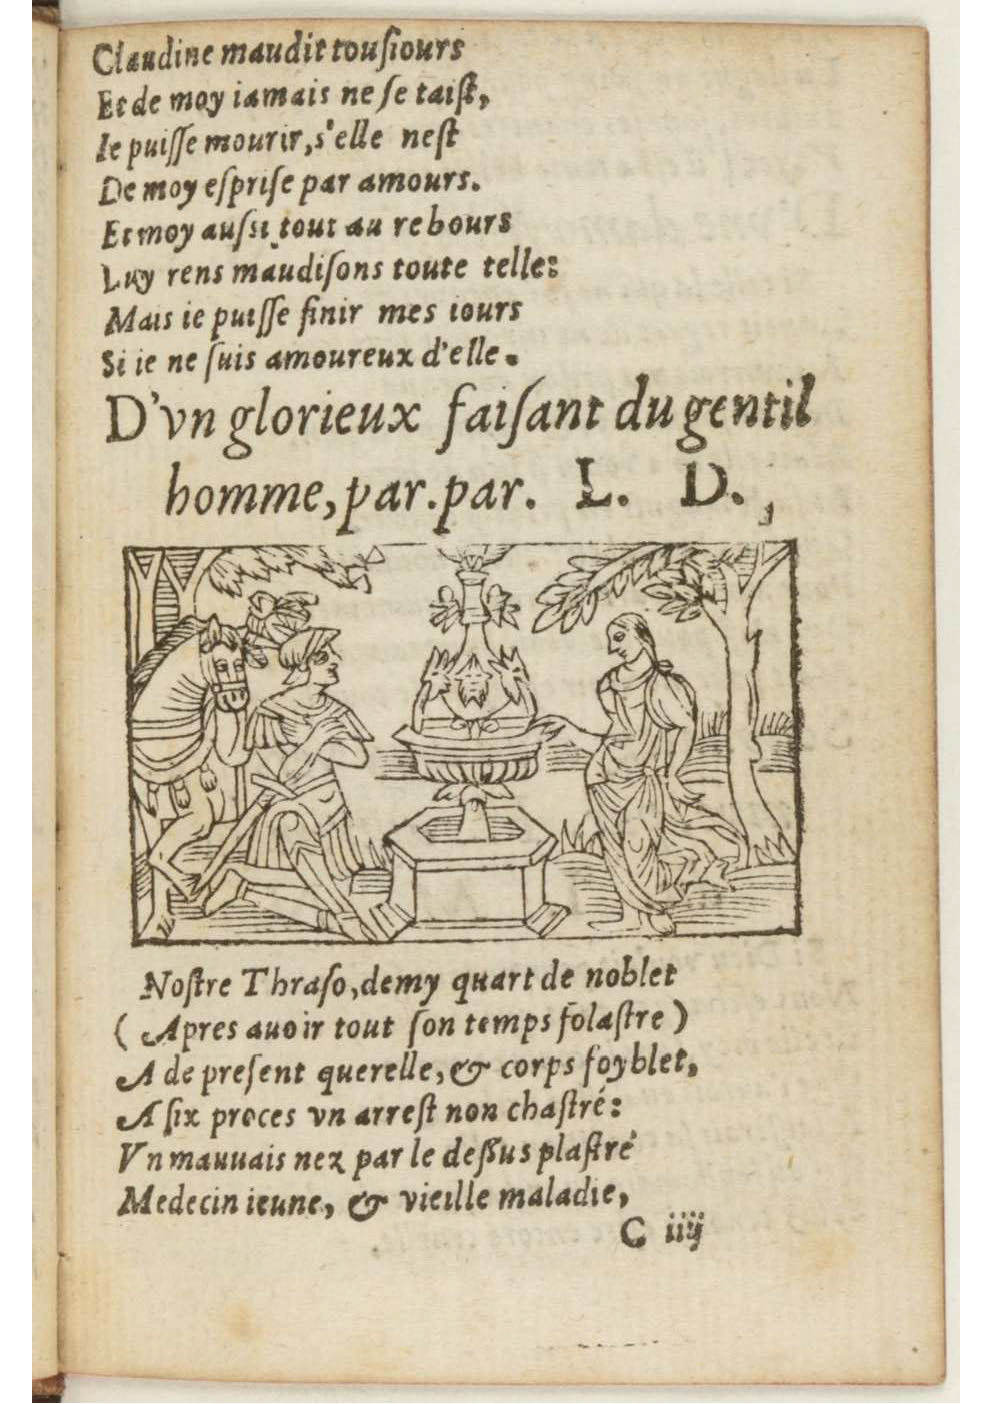 Claudine maudit touſiours
Et de moy iamais ne ſe taiſt,
Ie puiſſe mourir, s'elle neſt
De moy eſpriſe par amours.
Et moy auſsi tout au rebours
Luy rens maudiſons toute telle:
Mais ie puiſſe finir mes iours
Si ie ne ſuis amoureux d'elle.
D'vn glorieux faiſant du gentil
homme, par. par. L. D.,
Noſtre Thraſo, demy quart de noblet
( Apres auoir tout ſon temps folaſtre )
A de preſent querelle, & corps foyblet,
A ſix proces vn arreſt non chaſtré:
Vn mauuais nez par le deſſus plaſtré
Medecin ieune, & vieille maladie,
C iiij